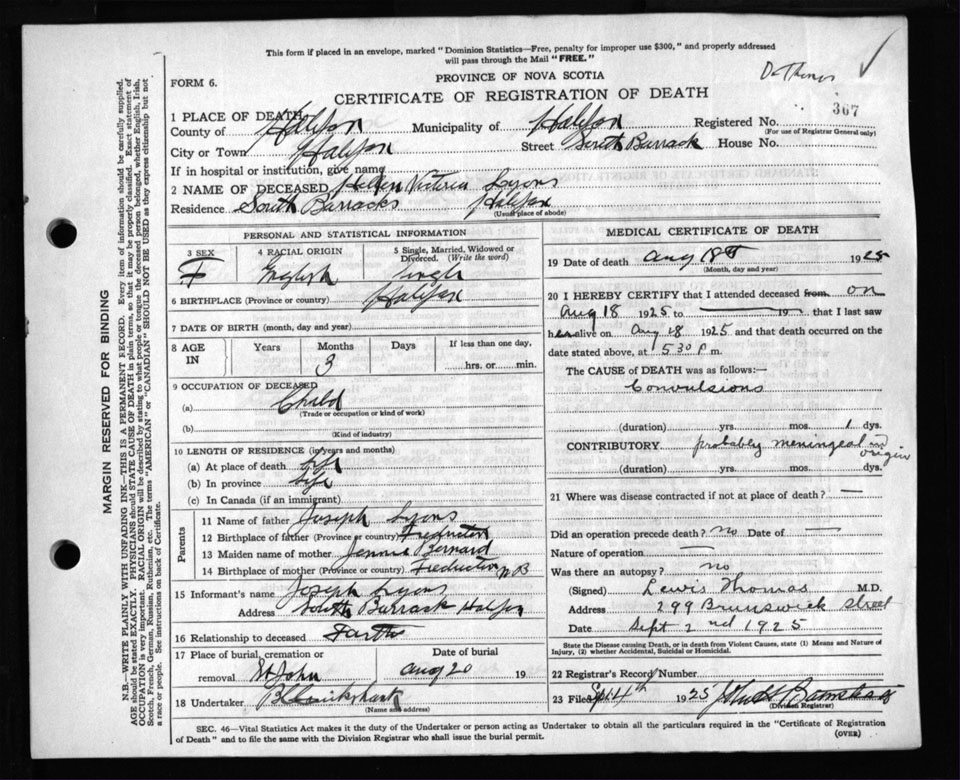 This form if placed in an envelope, marked "Dominion Statistics—Free, penalty for improper use $300," and properly addressed
will pass through the Mail "FREE."
FORM 6.
PROVINCE OF NOVA SCOTIA
CERTIFICATE OF REGISTRATION OF DEATH
367
1 PLACE OF DEATH
County of Halifax Municipality of Halifax Registered No.
(For use of Registrar General only)
City or Town Halifax Street South Barrack House No.
If in hospital or institution, give name
2 NAME OF DECEASED Hellen Victoria Lyons
Residence South Barracks Halifax
(Usual place of abode)
PERSONAL AND STATISTICAL INFORMATION
3 SEX 4 RACIAL ORIGIN 5 Single, Married, Widowed or
Divorced. (Write the word)
F English single
6 BIRTHPLACE (Province or country) Halifax
7 DATE OF BIRTH (month, day and year)
8 AGE IN Years Months Days If less than one day,
3 hrs. or min.
9 OCCUPATION OF DECEASED
(a) Child
(Trade or occupation or kind of work)
(b)
(Kind of industry)
10 LENGTH OF RESIDENCE (in years and months)
(a) At place of death life
(b) In province life
(c) In Canada (if an immigrant)
Parents
11 Name of father Joseph Lyons
12 Birthplace of father (Province or country) Fredricton
13 Maiden name of mother Jennie Bernard
14 Birthplace of mother (Province or country) Fredricton N B
15 Informant's name Joseph Lyons
Address South Barrack Halifax
16 Relationship to deceased
17 Place of burial, cremation or Date of burial
removal St John Aug 20 19
18 Undertaker
(Name and address)
MEDICAL CERTIFICATE OF DEATH
19 Date of death Aug 18th 1925
(Month, day and year)
20 I HEREBY CERTIFY that I attended deceased from on
Aug 18 1925 to 19 that I last saw
her alive on Aug 18 1925 and that death occurred on
date stated above, at 5 30 P m.
The CAUSE of DEATH was as follows:—
Convulsions
(duration) yrs. mos. 1 dys.
CONTRIBUTORY probably meningeal in origin
(duration) yrs. mos. dys.
21 Where was disease contracted if not at place of death? —
Did an operation precede death? no Date of —
Nature of operation —
Was there an autopsy? no
(Signed) Lewis Thomas M.D.
Address 299 Brunswick Street
Date Sept 2nd 1925
State the Disease causing Death, or in death from Violent Causes, state (1) Means and Nature of
Injury, (2) whether Accidental, Suicidal or Homicidal.
22 Registrar's Record Number
23 Filed Sept 4th 1925
(Division Registrar)
SEC. 46—Vital Statistics Act makes it the duty of the Undertaker or person acting as Undertaker to obtain all the particulars required in the "Certificate of Registration
of Death" and to file the same with the Division Registrar who shall issue the burial permit.
(OVER)
MARGIN RESERVED FOR BINDING
N.B.—WRITE PLAINLY WITH UNFADING INK—THIS IS A PERMANENT RECORD. Every item of information should be carefully supplied.
AGE should be stated EXACTLY. PHYSICIANS should STATE CAUSE OF DEATH in plain terms, so that it may be properly classified. Exact statement of
OCCUPATION is very important. RACIAL ORIGIN will be described by stating to what people or tongue the deceased person belonged, whether English, Irish,
Scotch, French, German, Russian, Ruthenian, etc. The terms "AMERICAN" or "CANADIAN" SHOULD NOT BE USED as they express citizenship but not
a race or people. See instructions on back of Certificate.